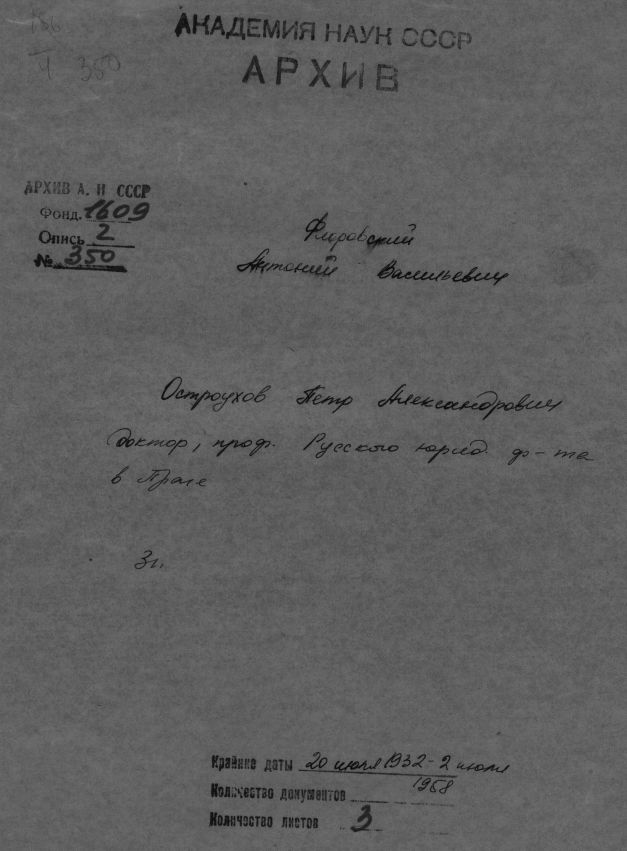 186
V 350
АКАДЕМИЯ НАУК СССР
АРХИВ
АРХИВ А. Н СССР
Фонд. 1609
Опись 2
№ 350
Флоровский
Антоний Васильевич
Остроухов Петр Александрович
доктор, проф. Русского юрид. ф-та
в Праге
3п.
Крайние даты 20 июля 1932 - 2 июля
1968
Количество документов
Количество листов 3